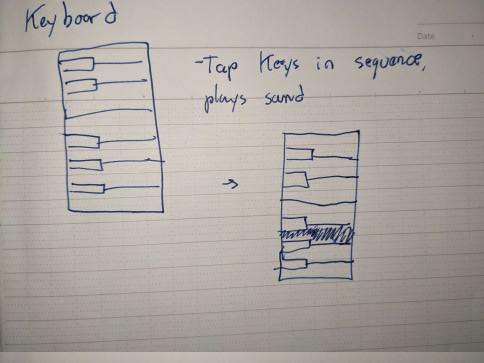 Keyboard
Date
-Tap Keys in sequence,
plays sound